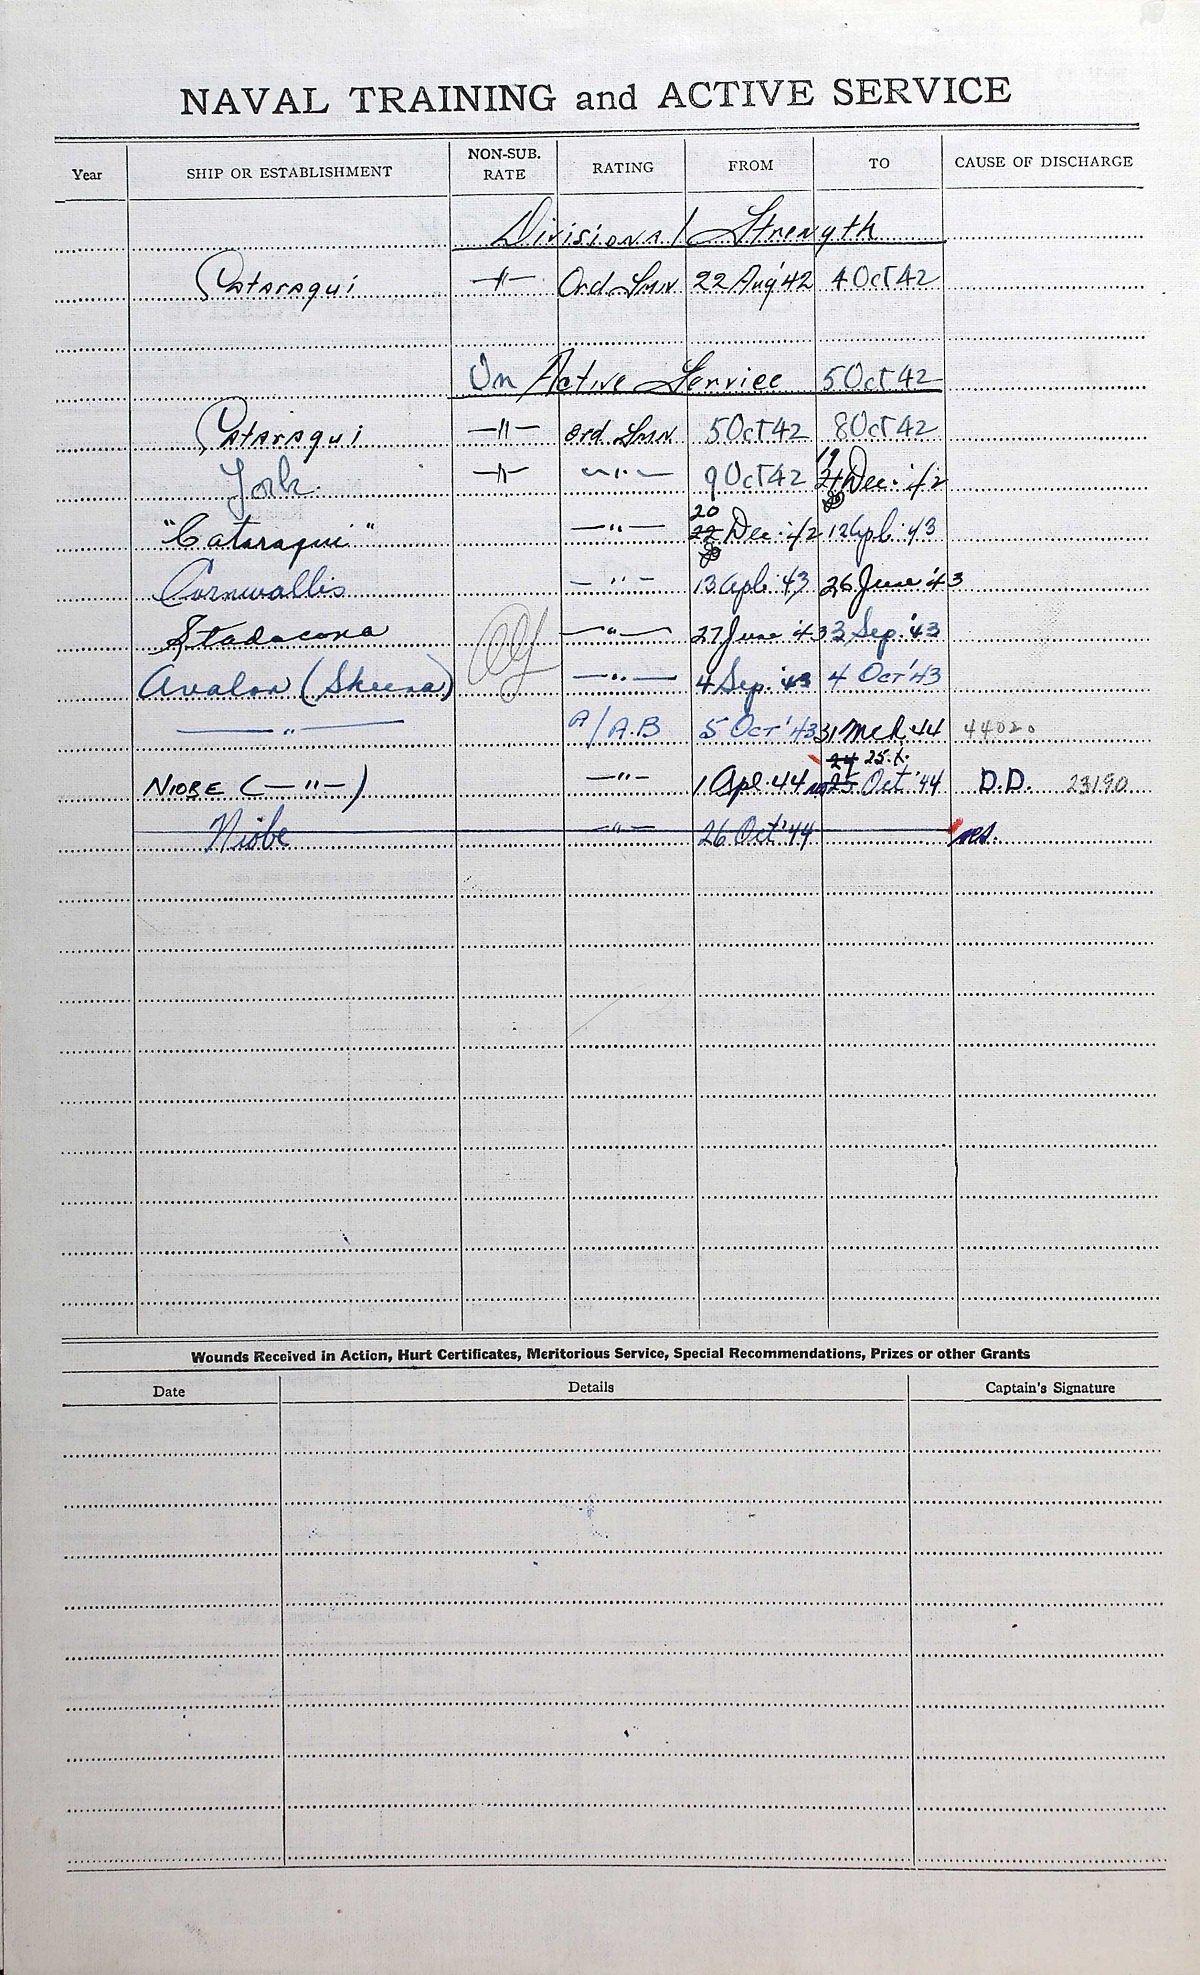 NAVAL TRAINING and ACTIVE SERVICE
Year SHIP OR ESTABLISHMENT NON-SUB. RATE RATING FROM TO CAUSE OF DISCHARGE
Divisional Strength
Cataraqui —"— Ord. Smn 22 Aug '42 4 Oct 42
On Active Service 5 Oct 42
Cataraqui —"— Ord. Smn 5 Oct 42 8 Oct 42
York —"— —"— 9 Oct 42 19 21 Dec. '42
"Cataraqui" —"— 20 22 Dec. '42 12 Apl. '43
Cornwallis —"— 13 Apl. '43 26 June '43
Stadacona —"— 27 June '43 3 Sep. '43
Avalon (Skeena) —"— 4 Sep. '43 4 Oct '43
—"— A/A.B 5 Oct '43 31 Mch 44 44020
24 25.X.
NIOBE (—"—) —"— 1 Apl. 44 25 Oct '44 D.D. 23190
Niobe —"— 26 Oct '44
Wounds Received in Action, Hurt Certificates, Meritorious Service, Special Recommendations, Prizes or other Grants
Date Details Captain's Signature